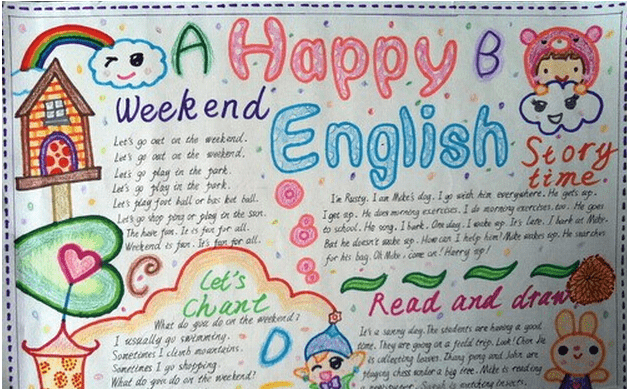 A Happy B
English
Weekend
Let's go out on the weekend.
Let's go out on the weekend.
Let's go play in the park.
Let's go play in the park.
Let's play foot ball or bas ket ball.
Let's go shop ping or play in the sun.
The have fun. It is fun for all.
Weekend is fun. It's fun for all.
Story
time.
I'm Rusty. I am Mike's dog. I go with him everywhere. He gets up.
I get up. He does morning exercises. I do morning exercises, too. He goes
to school. He song. I bark. One day. I wake up. It's late. I bark at Mike.
But he doesn't wake up. How can I help him? Mike wakes up. He searches
for his bag. Oh Mike, come on! Harry up!
C
Let's
Chant
What do you do on the weekend?
I usually go swimming.
Sometimes I climb mountains.
Sometimes I go shopping.
What do you do on the weekend?
D
Read and draw
It's a sunny day. The students are having a good
time. They are going on a field trip. Look! Chen Jie
is collecting leaves. Zhang peng and John are
playing chess under a big tree. Mike is reading
a newspaper. Sarah is